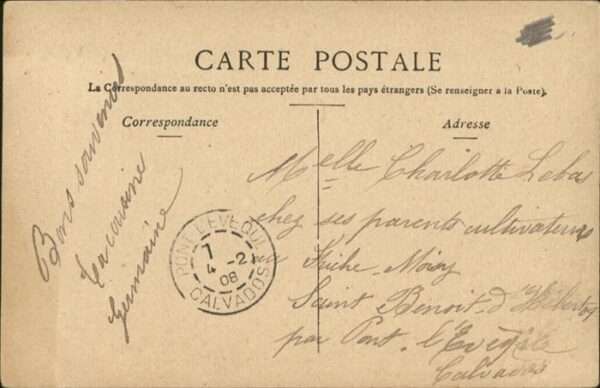 CARTE POSTALE
La Correspondance au recto n'est pas acceptée par tous les pays étrangers (Se renseigner à la Poste).
Correspondance
Adresse
Bons souvenirs
Ta cousine
Germaine
PONT-L'EVEQUE
7
4 -2
08
CALVADOS
Melle Charlotte Lebas
chez ses parents cultivateurs
Saint Benoit. d'Hébertot
par Pont. l'Evêque
Calvados